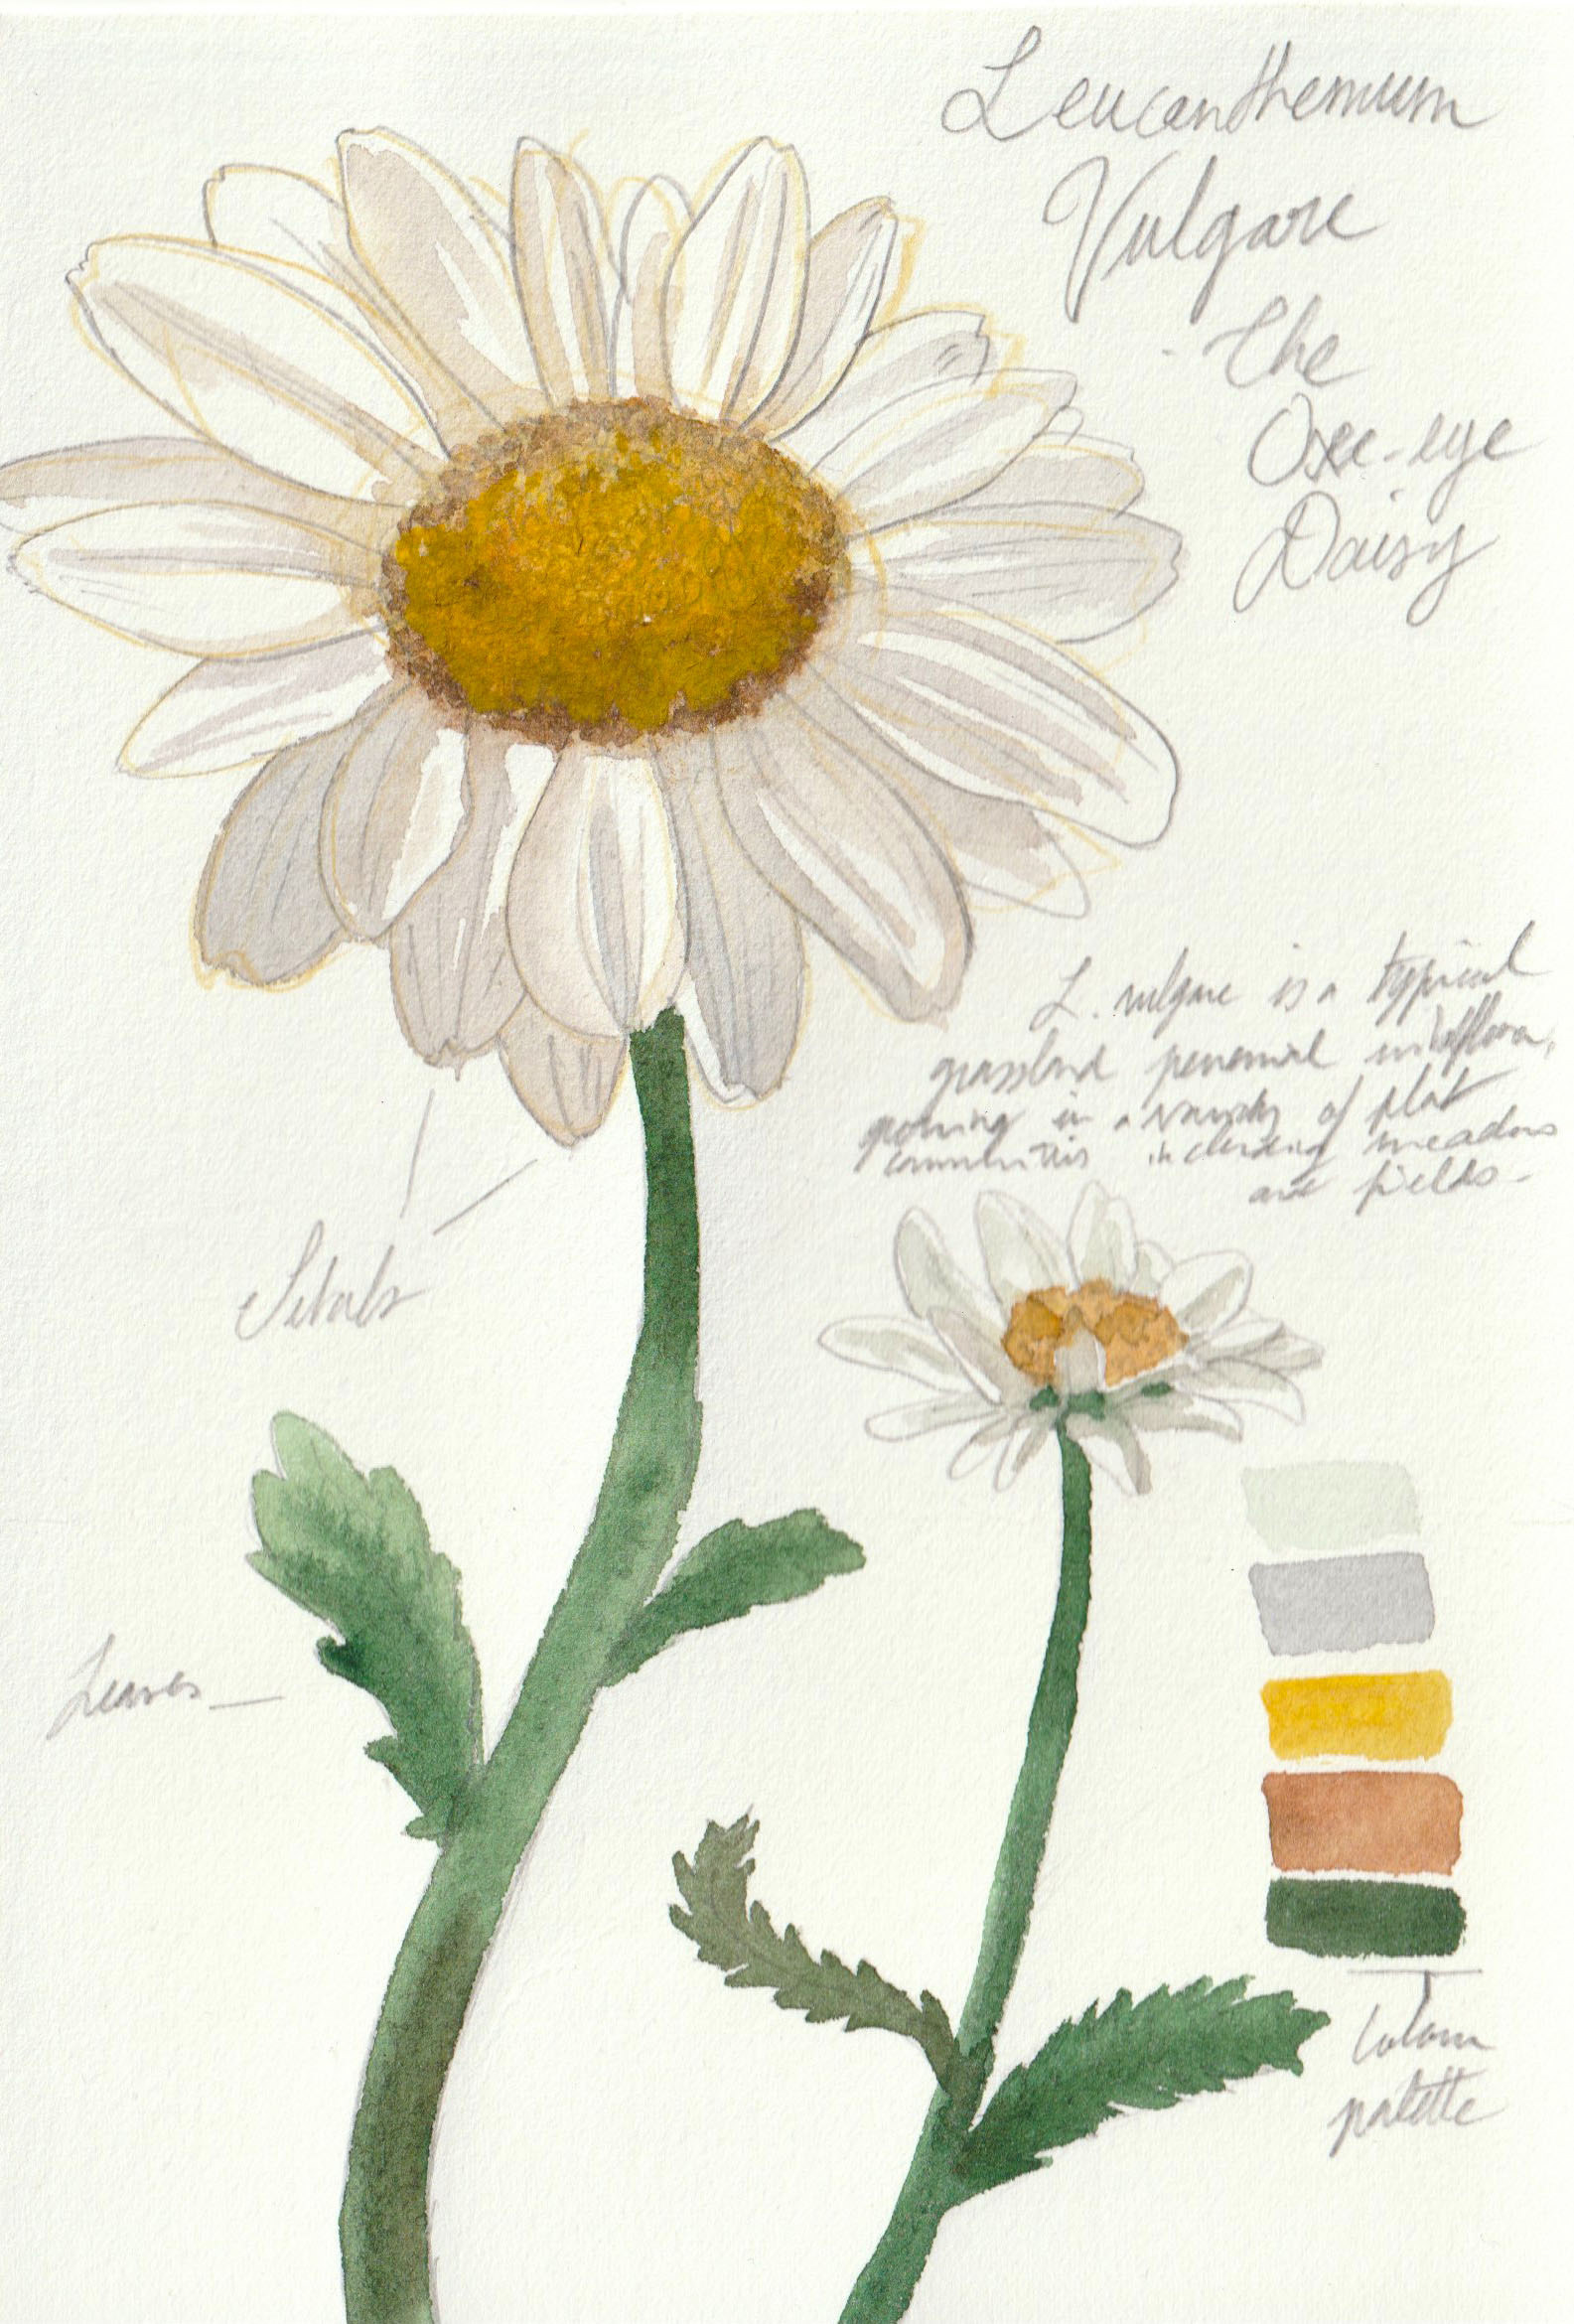 Leucanthemum
Vulgare
- The
Oxe-eye
Daisy
L. vulgare is a typical
grassland perennial wildflower,
growing in a variety of plat
communities including meadows
and fields-
Petals
Leaves
Colour
palette